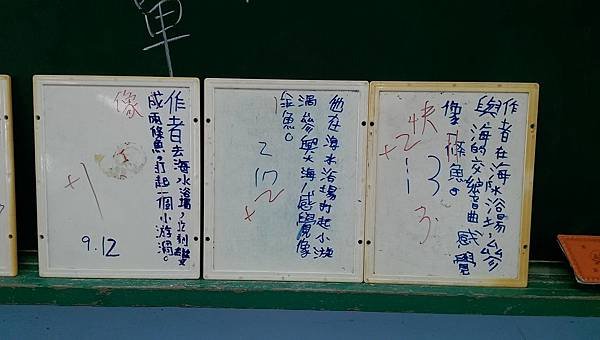 單
作者去海水浴場,立刻變
成兩條魚。打起一個小游渦。
像
+1
9.12
他在海水浴場打起小漩
渦參與海,感覺像
魚。
2
17
+2
作者在海水浴場參
與海的交響曲感覺
像1條魚。
快
+2
13
3.